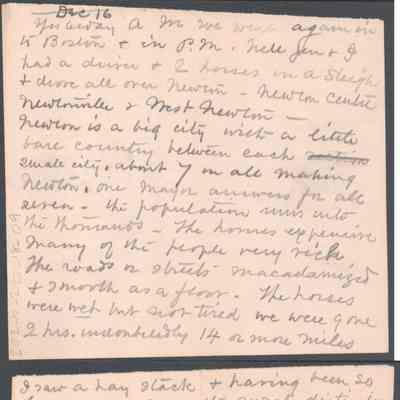 Dec 16
Yesterday A M we went again in
to Boston & in P.M. Nell Jen & I
had a driver & 2 horses in a Sleigh
& drove all over Newton - Newton Centre
Newtonville & West Newton -
Newton is a big city with a little
bare country between each
small city, about 7 in all making
Newton. one mayor answers for all
seven - the population runs into
the thousands - The homes expensive
many of the people very rich
The roads or streets macadamized
& smooth as a floor. The horses
were wet but not tired we were gone
2 hrs. undoubtedly 14 or more miles
I saw a hay stack & having been so